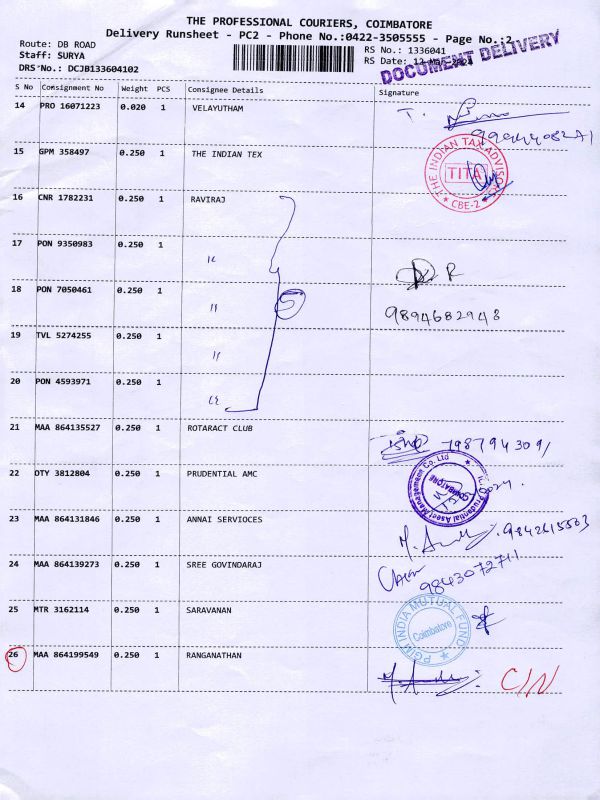 THE PROFESSIONAL COURIERS, COIMBATORE
Delivery Runsheet - PC2 - Phone No.:0422-3505555 - Page No.:2
Route: DB ROAD
Staff: SURYA
DRS No.: DCJB133604102
RS No.: 1336041
RS Date:
DOCUMENT DELIVERY
S No Consignment No Weight PCS Consignee Details Signature
14 PRO 16071223 0.020 1 VELAYUTHAM
15 GPM 358497 0.250 1 THE INDIAN TEX
THE INDIAN TAX ADVISORS
TITA
* CBE-2 *
16 CNR 1782231 0.250 1 RAVIRAJ
17 PON 9350983 0.250 1 "
R
18 PON 7050461 0.250 1 "
5
9894682948
19 TVL 5274255 0.250 1 "
20 PON 4593971 0.250 1 "
21 MAA 864135527 0.250 1 ROTARACT CLUB
22 OTY 3812804 0.250 1 PRUDENTIAL AMC
Prudential Asset Management Co Ltd
COIMBATORE
23 MAA 864131846 0.250 1 ANNAI SERVIOCES
9842615503
24 MAA 864139273 0.250 1 SREE GOVINDARAJ
9843072711
25 MTR 3162114 0.250 1 SARAVANAN
PGIM INDIA MUTUAL FUND
Coimbatore
26 MAA 864199549 0.250 1 RANGANATHAN
C/N